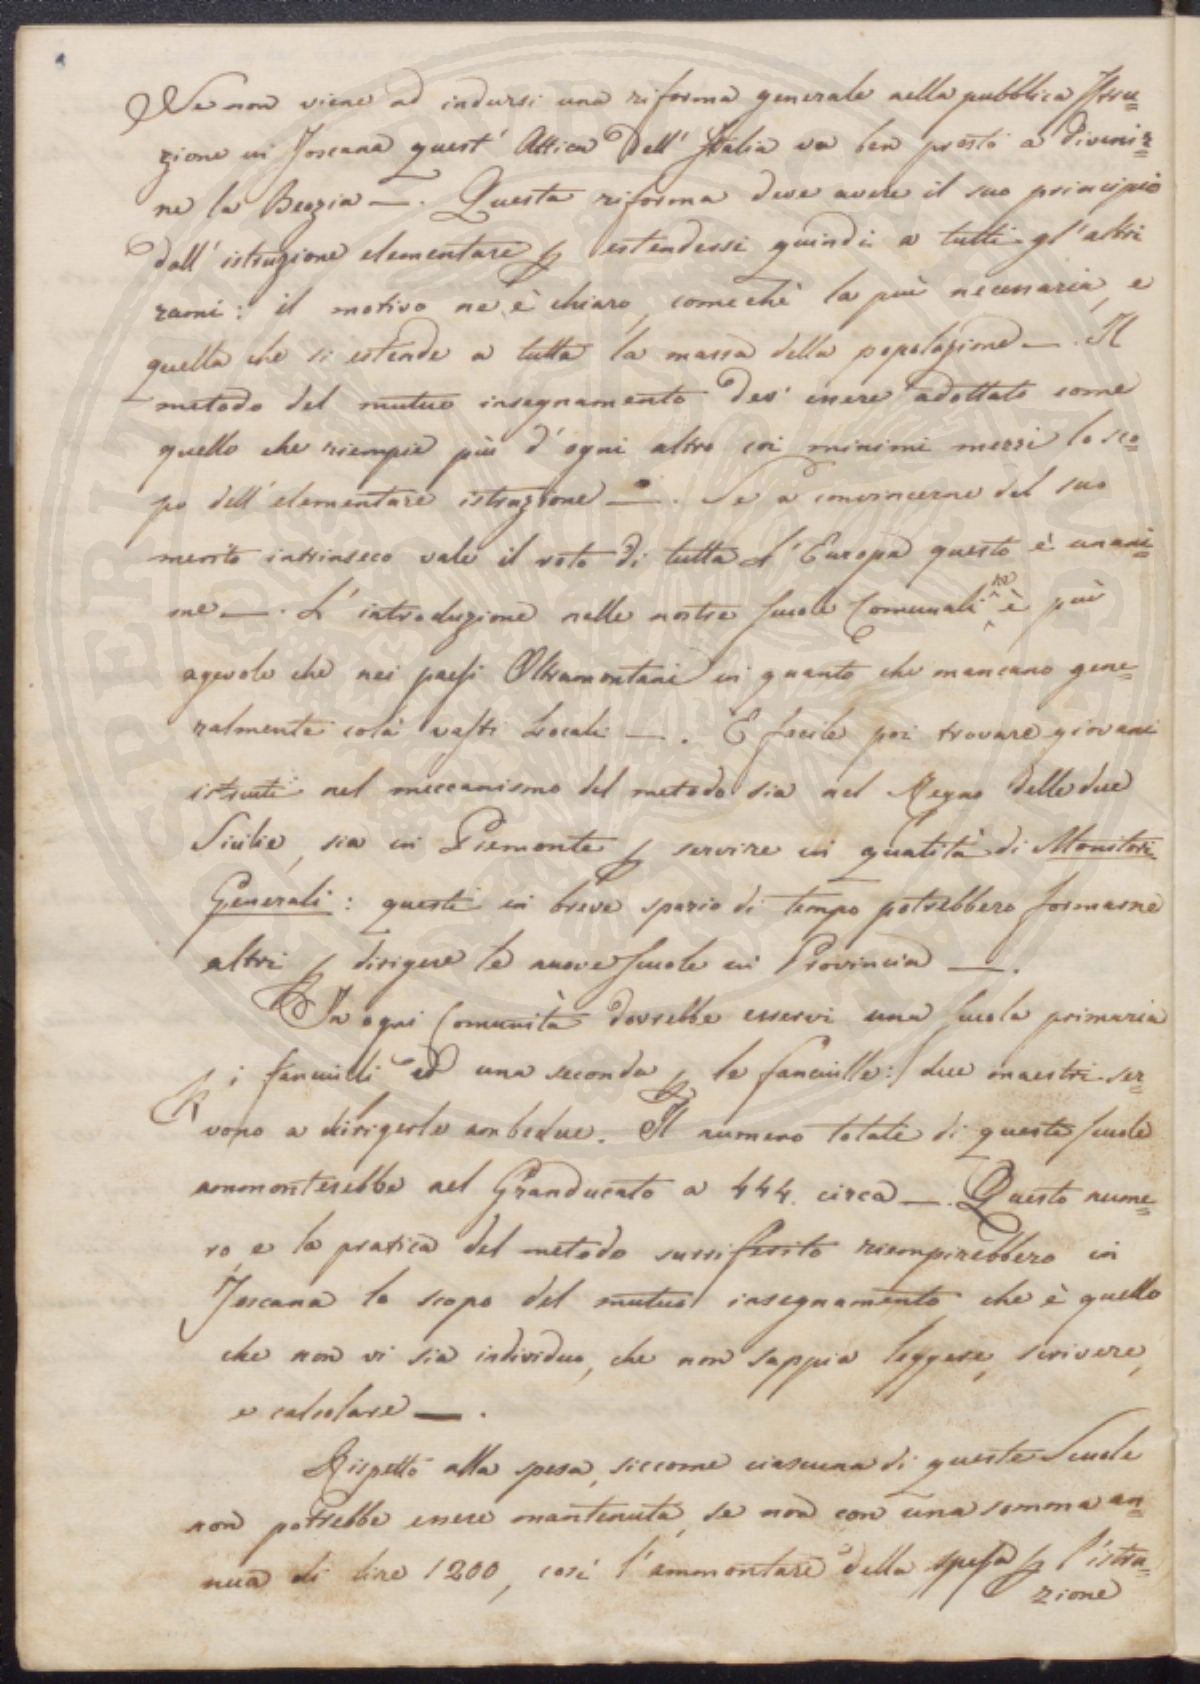 Se non viene ad indursi una riforma generale nella pubblica Istru=
zione in Toscana quest' Attica dell' Italia va ben presto a divenir=
ne la Beozia —. Questa riforma deve avere il suo principio
dall' istruzione elementare p estendersi quindi a tutti gl' altri
rami: il motivo ne è chiaro, comechè la più necessaria, e
quella che si estende a tutta la massa della popolazione —. Il
metodo del mutuo insegnamento dev' essere adottato come
quello che riempie più d' ogni altro coi minimi mezzi lo sco=
po dell' elementare istruzione —. Se a convincerne del suo
merito intrinseco vale il voto di tutta l' Europa questo è unani=
me —. L' introduzione nelle nostre scuole Comunali n è più
agevole che nei paesi Oltramontani in quanto che mancano gene=
ralmente colà vasti Locali —. E facile poi trovare giovani
istruiti nel meccanismo del metodo sia nel Regno delle due
Sicilie, sia in Piemonte p servire in qualità di Monitori
Generali: questi in breve spazio di tempo potrebbero formarne
altri p dirigere le nuove scuole in Provincia —.
In ogni Comunità dovrebbe esservi una scuola primaria
p i fanciulli ed una seconda p le fanciulle: due maestri ser=
vono a dirigerle ambedue. Il numero totale di queste scuole
ammonterebbe nel Granducato a 444. circa —. Questo nume=
ro, e la pratica del metodo surriferito riempirebbero in
Toscana lo scopo del mutuo insegnamento che è quello
che non vi sia individuo, che non sappia leggere, scrivere,
e calcolare —.
Rispetto alla spesa, siccome ciascuna di queste Scuole
non potrebbe essere mantenuta, se non con una somma an=
nua di lire 1200, così l' ammontare della spesa p l' istru=
zione